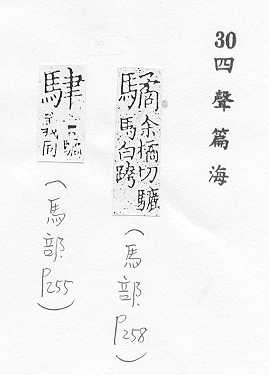 30四聲篇海
驈余橘切驪
馬白跨
(馬部P.258)
義同
(馬部P.255)